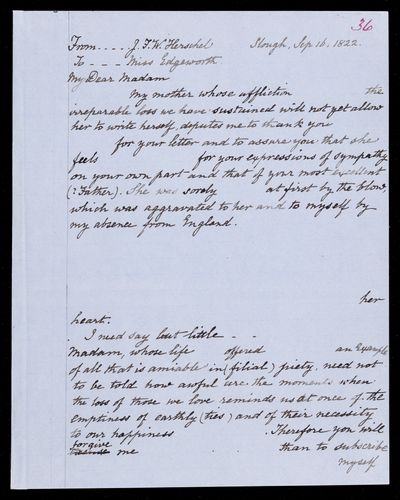 36
From .... J. F. W. Herschel Slough, Sep 16, 1822.
To - - - Miss Edgeworth
My Dear Madam
My mother whose affliction the
irreparable loss we have sustained will not yet allow
her to write herself, deputes me to thank you
for your letter and to assure you that she
feels for your expressions of sympathy
on your own part and that of your most excellent
(? Father). She was sorely at first by the blow,
which was aggravated to her and to myself by
my absence from England.
her
heart.
I need say but little - -
Madam, whose life offered an example
of all that is amiable in (filial) piety, need not
to be told how awful are the moments when
the loss of those we love reminds us at once of the
emptiness of earthly (ties) and of their necessity
to our happiness . Therefore you will
forgive
me than to subscribe
myself